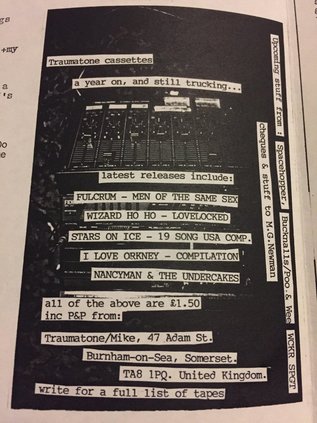 Traumatone cassettes
a year on, and still trucking...
latest releases include:
FULCRUM - MEN OF THE SAME SEX
WIZARD HO HO - LOVELOCKED
STARS ON ICE - 19 SONG USA COMP.
I LOVE ORKNEY - COMPILATION
NANCYMAN & THE UNDERCAKES
all of the above are £1.50
inc P&P from:
Traumatone/Mike, 47 Adam St.
Burnham-on-Sea, Somerset.
TA8 1PQ. United Kingdom.
write for a full list of tapes
Upcoming stuff from : Spacehopper, Bucknalls/Poo & Wee WCKR SPGT
cheques & stuff to M.G.Newman